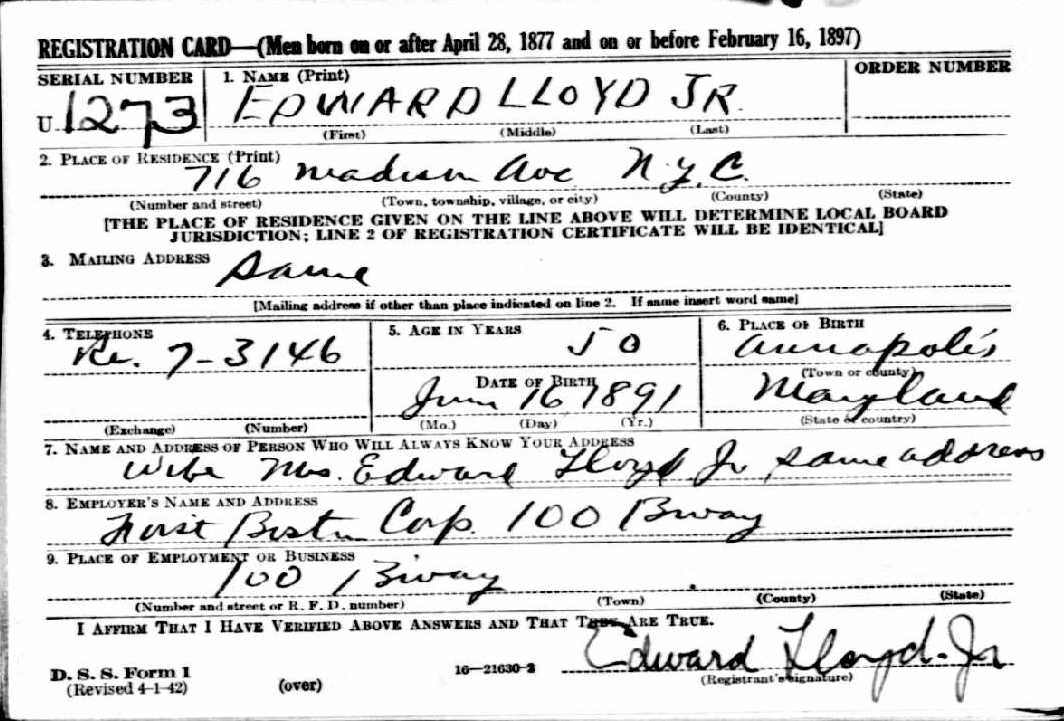 REGISTRATION CARD—(Men born on or after April 28, 1877 and on or before February 16, 1897)
SERIAL NUMBER 1. NAME (Print) ORDER NUMBER
U 1273 EDWARD LLOYD JR.
(First) (Middle) (Last)
2. PLACE OF RESIDENCE (Print)
716 Madison Ave N.Y.C.
(Number and street) (Town, township, village, or city) (County) (State)
[THE PLACE OF RESIDENCE GIVEN ON THE LINE ABOVE WILL DETERMINE LOCAL BOARD
JURISDICTION; LINE 2 OF REGISTRATION CERTIFICATE WILL BE IDENTICAL]
3. MAILING ADDRESS
Same
[Mailing address if other than place indicated on line 2. If same insert word same]
4. TELEPHONE 5. AGE IN YEARS 6. PLACE OF BIRTH
Re. 7-3146 50 Annapolis
DATE OF BIRTH (Town or county)
June 16 1891 Maryland
(Exchange) (Number) (Mo.) (Day) (Yr.) (State or country)
7. NAME AND ADDRESS OF PERSON WHO WILL ALWAYS KNOW YOUR ADDRESS
Wife Mrs. Edward Lloyd Jr same address
8. EMPLOYER'S NAME AND ADDRESS
First Boston Corp. 100 Bway
9. PLACE OF EMPLOYMENT OR BUSINESS
100 Bway
(Number and street or R. F. D. number) (Town) (County) (State)
I AFFIRM THAT I HAVE VERIFIED ABOVE ANSWERS AND THAT THEY ARE TRUE.
Edward Lloyd. Jr
D. S. S. Form 1 16—21630-2 (Registrant's signature)
(Revised 4-1-42) (over)